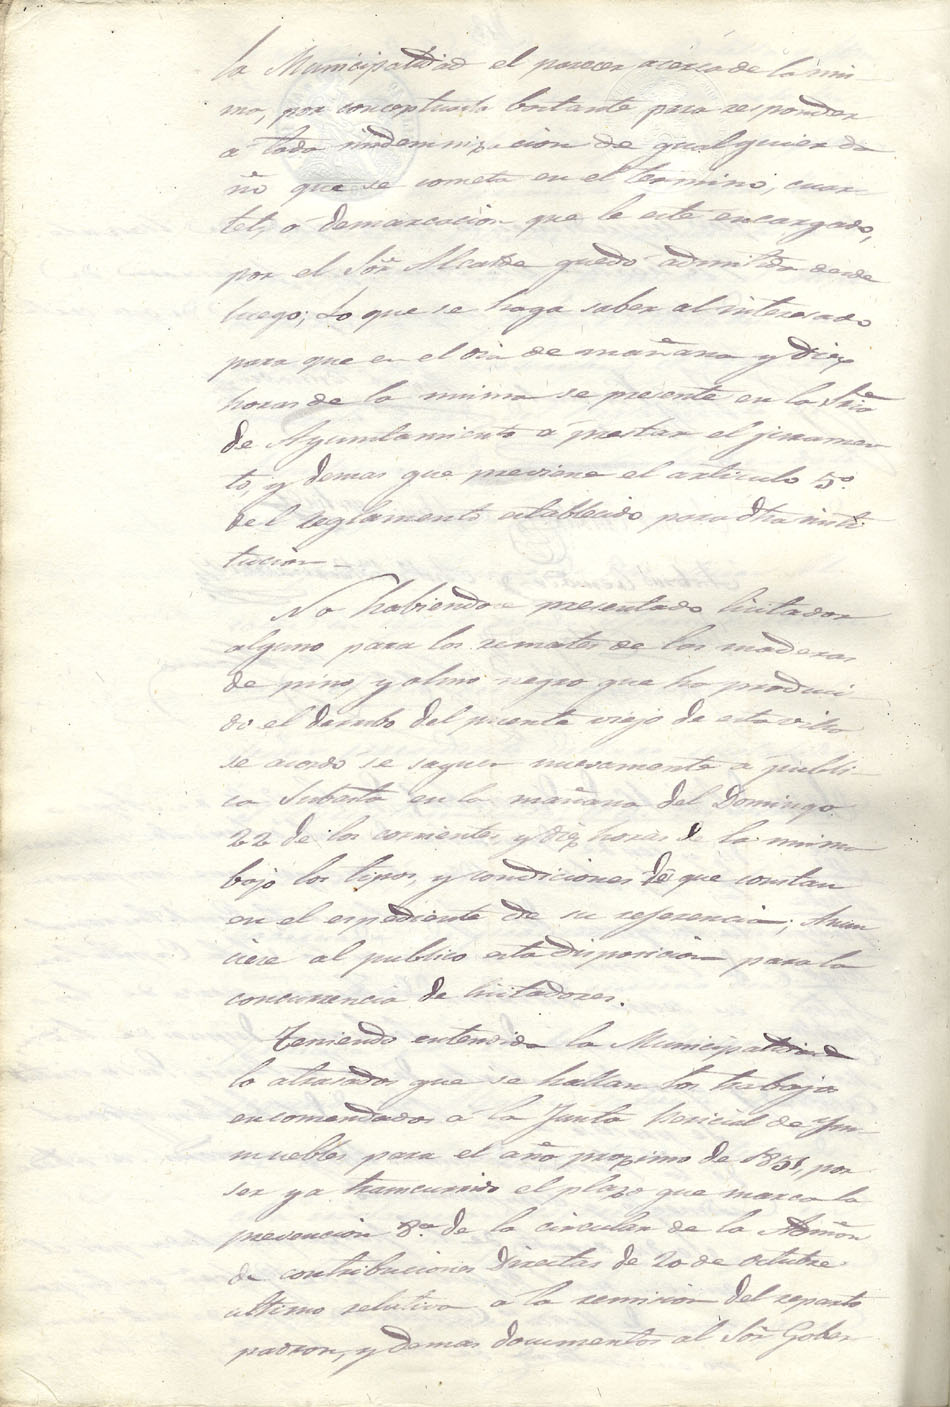 la Municipalidad el parecer acerca de la mis-
ma, por conceptuarla bastante para responder
a toda indemnizacion de qualquier da
ño que se cometa en el termino, cuar-
tel, o demarcacion que le este encargado,
por el Sõr Alcalde quedó admitida desde
luego; Lo que se haga saber al interesado
para que en el dia de mañana y diez
horas de la misma se presente en la Sria
de Ayuntamiento a prestar el juramen-
to, y demas que previene el articulo 5º
del reglamento establecido para dha insti
tucion-
No habiendose presentado licitador
alguno para los remates de las maderas
de pino, y olmo negro que ha produci
do el derribo del puente viejo de esta villa
se acordo se saquen nuevamente a publi-
ca subasta en la mañana del Domingo
22 de los corrientes, y diez horas de la misma
bajo los tipos, y condiciones de que constan
en el espediente de su referencia; Anun
ciese al publico esta disposicion para la
concurrencia de licitadores.
Teniendo entendido la Municipalidad
lo atrasados que se hallan los trabajos
encomendados a la Junta Pericial de Ym-
muebles para el año proximo de 1851, por
ser ya transcurrido el plazo que marca la
prevencion 8ª de la circular de la Admõn
de contribuciones Directas de 20 de Octubre
ultimo relativa a la remision del reparto
padron, y demas documentos al Sõr Gober